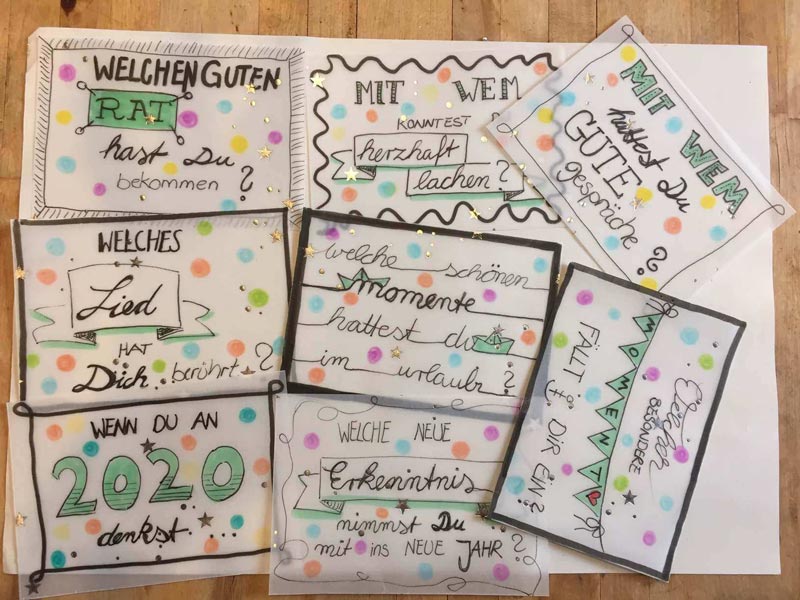 WELCHEN GUTEN
RAT
hast Du
bekommen?
MIT WEM
KONNTEST
herzhaft
lachen?
MIT WEM
hattest Du
GUTE
gespräche?
WELCHES
Lied
HAT
Dich berührt?
welche schönen
momente
hattest du
im urlaub?
Welcher
BESONDERE
MOMENT
FÄLLT DIR EIN?
WENN DU AN
2020
denkst
WELCHE NEUE
Erkenntnis
nimmst Du
mit ins NEUE JAHR?